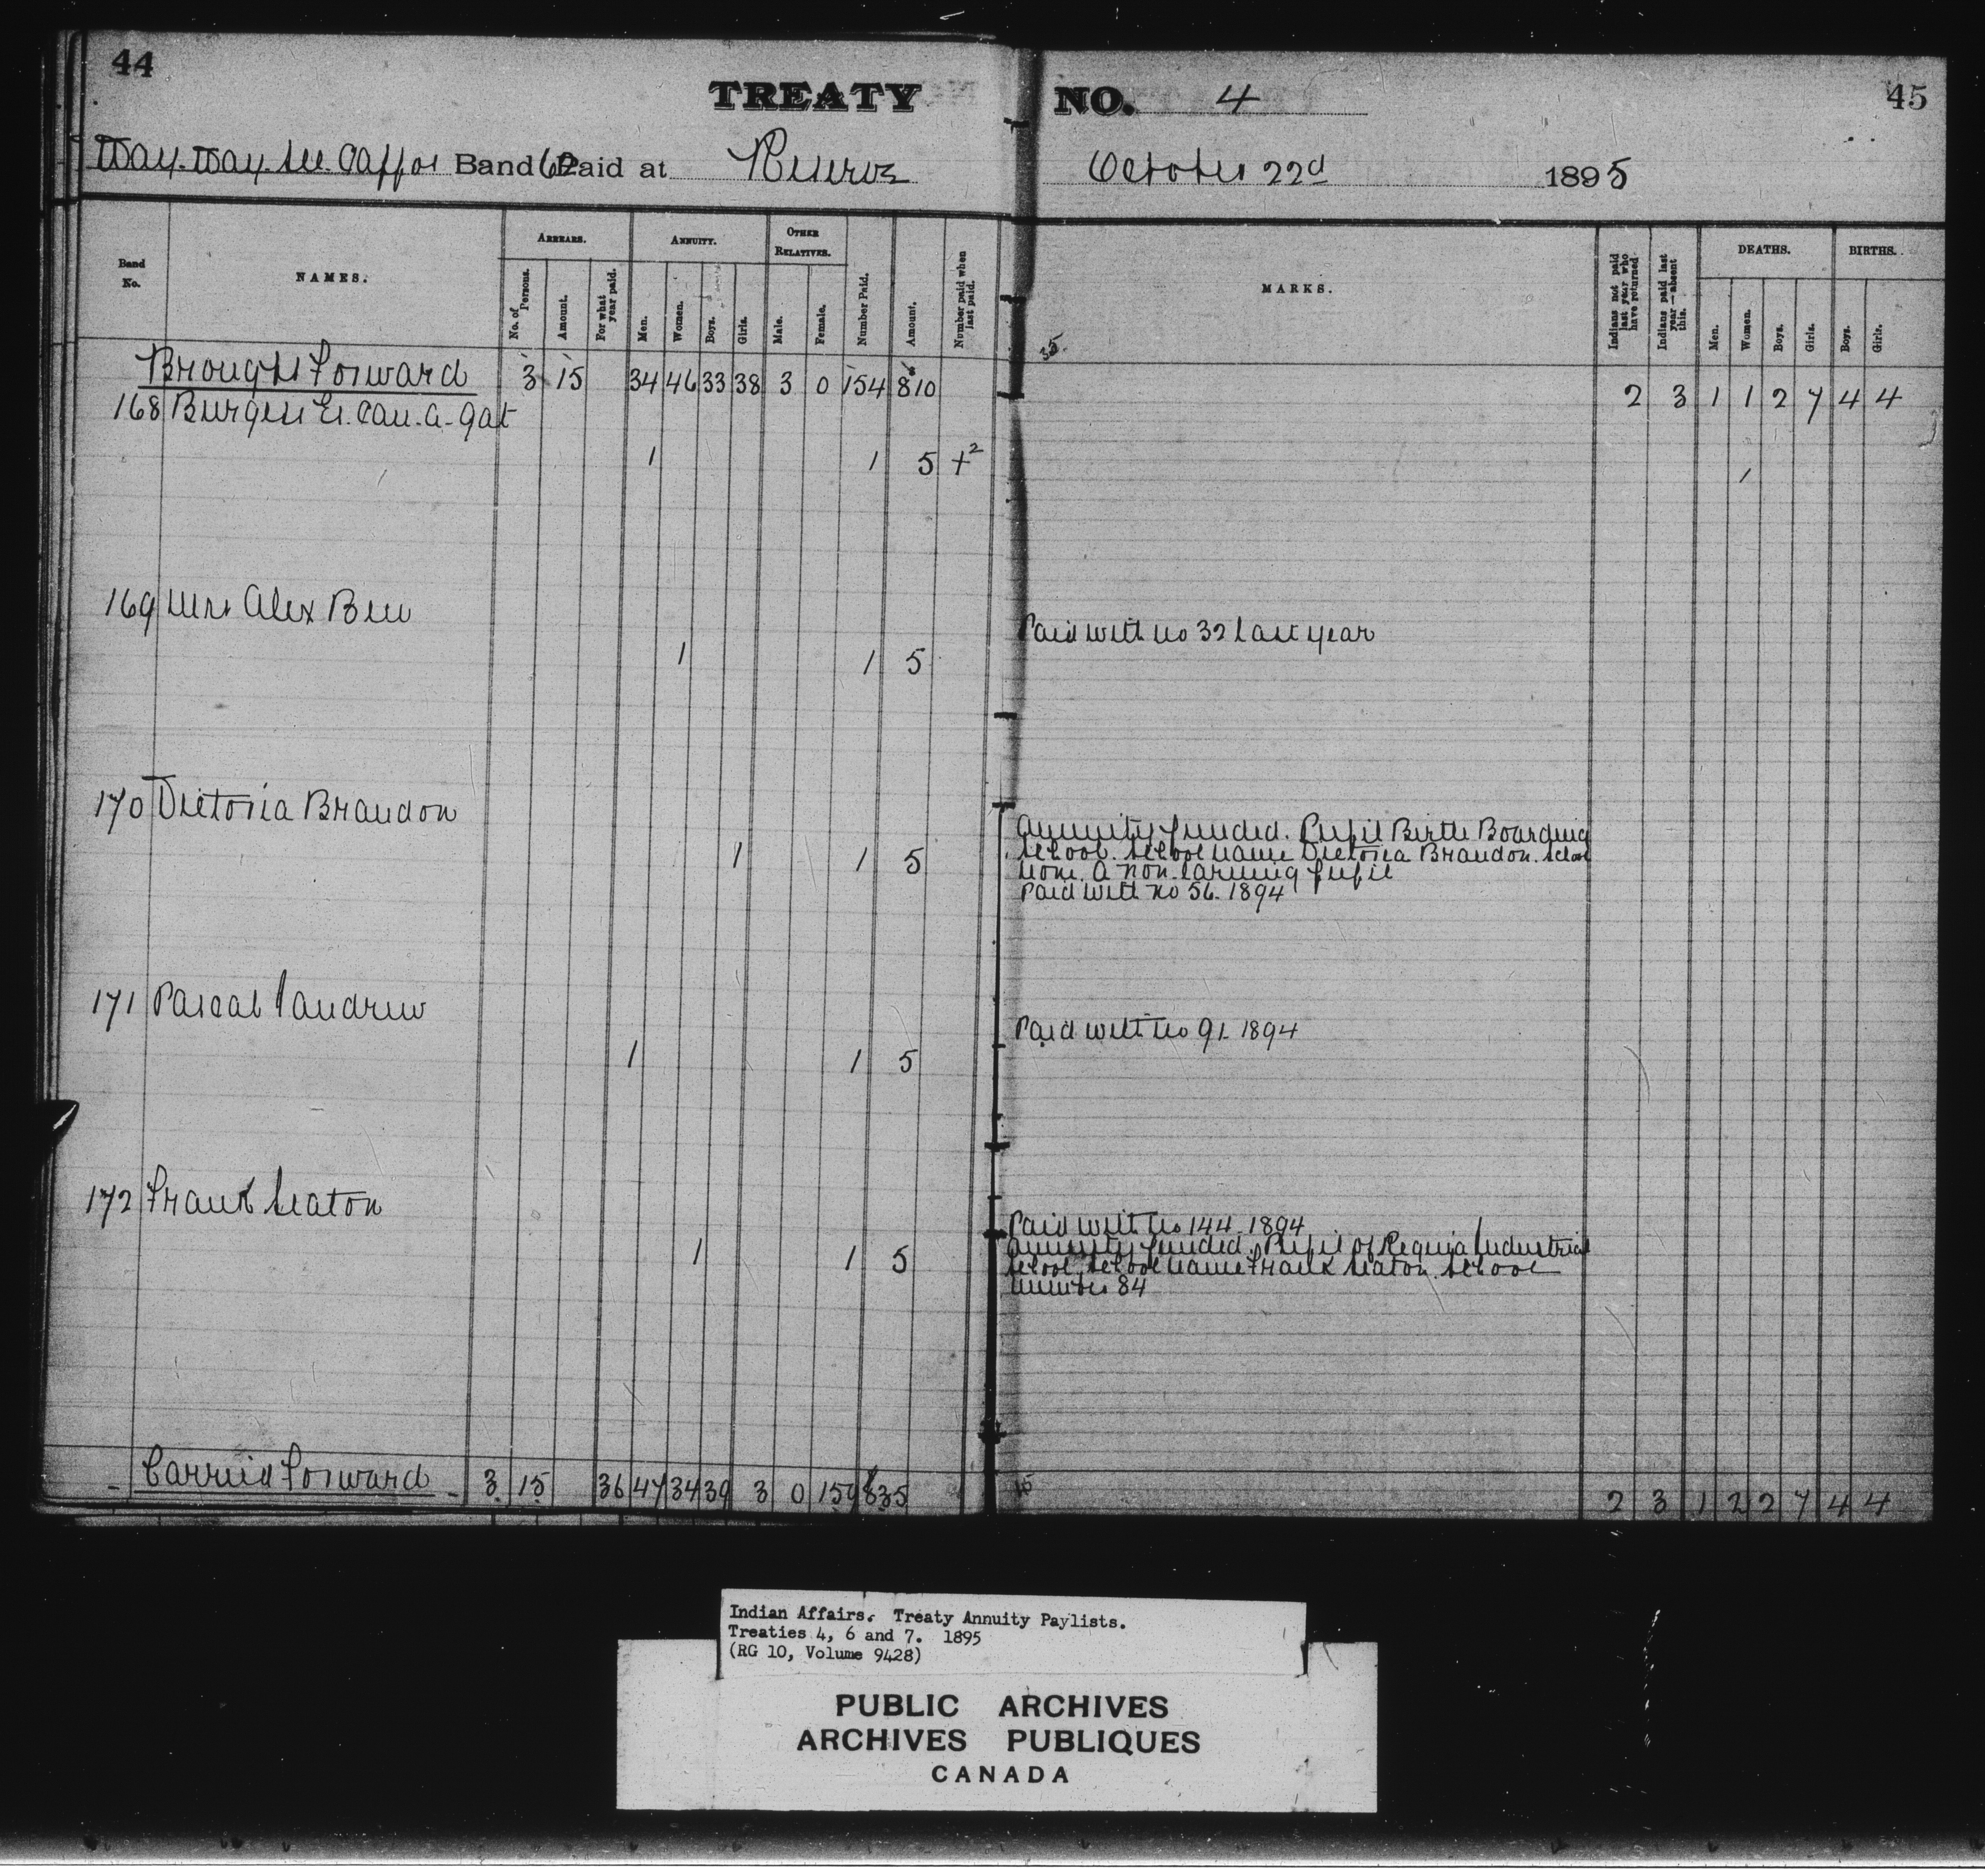 44
TREATY NO. 4
45
Way.Way.See.Cappos Band 62 Paid at Reserve October 22d 1895
Band No.
NAMES.
ARREARS.
No. of Persons.
Amount.
For what year paid.
ANNUITY.
Men.
Women.
Boys.
Girls.
OTHER RELATIVES.
Male.
Female.
Number Paid.
Amount.
Number paid when last paid.
MARKS.
Indians not paid last year who have returned
Indians paid last year—absent this.
DEATHS.
Men.
Women.
Boys.
Girls.
BIRTHS.
Boys.
Girls.
Brought Forward 3 15 34 46 33 38 3 0 154 810 2 3 1 1 2 7 4 4
168 Burgess
1 1 5 +2 1
169 Mrs Alex Bew
Paid with no 32 last year
1 1 5
170 Victoria Brandon
Annuity funded. Pupil Birtle Boarding
1 1 5 School. School name Victoria Brandon. School
none. A non-earning pupil
Paid with no 56. 1894
171 Pascal Jandrew
Paid with no 91. 1894
1 1 5
172 Frank Seaton
Paid with no 144. 1894
1 1 5 Annuity funded. Pupil of Regina Industrial
School. School name Frank Seaton. School
number 84
Carried Forward 3 15 36 47 34 39 3 0 159 835 2 3 1 2 2 7 4 4
Indian Affairs. Treaty Annuity Paylists.
Treaties 4, 6 and 7. 1895
(RG 10, Volume 9428)
PUBLIC ARCHIVES
ARCHIVES PUBLIQUES
CANADA